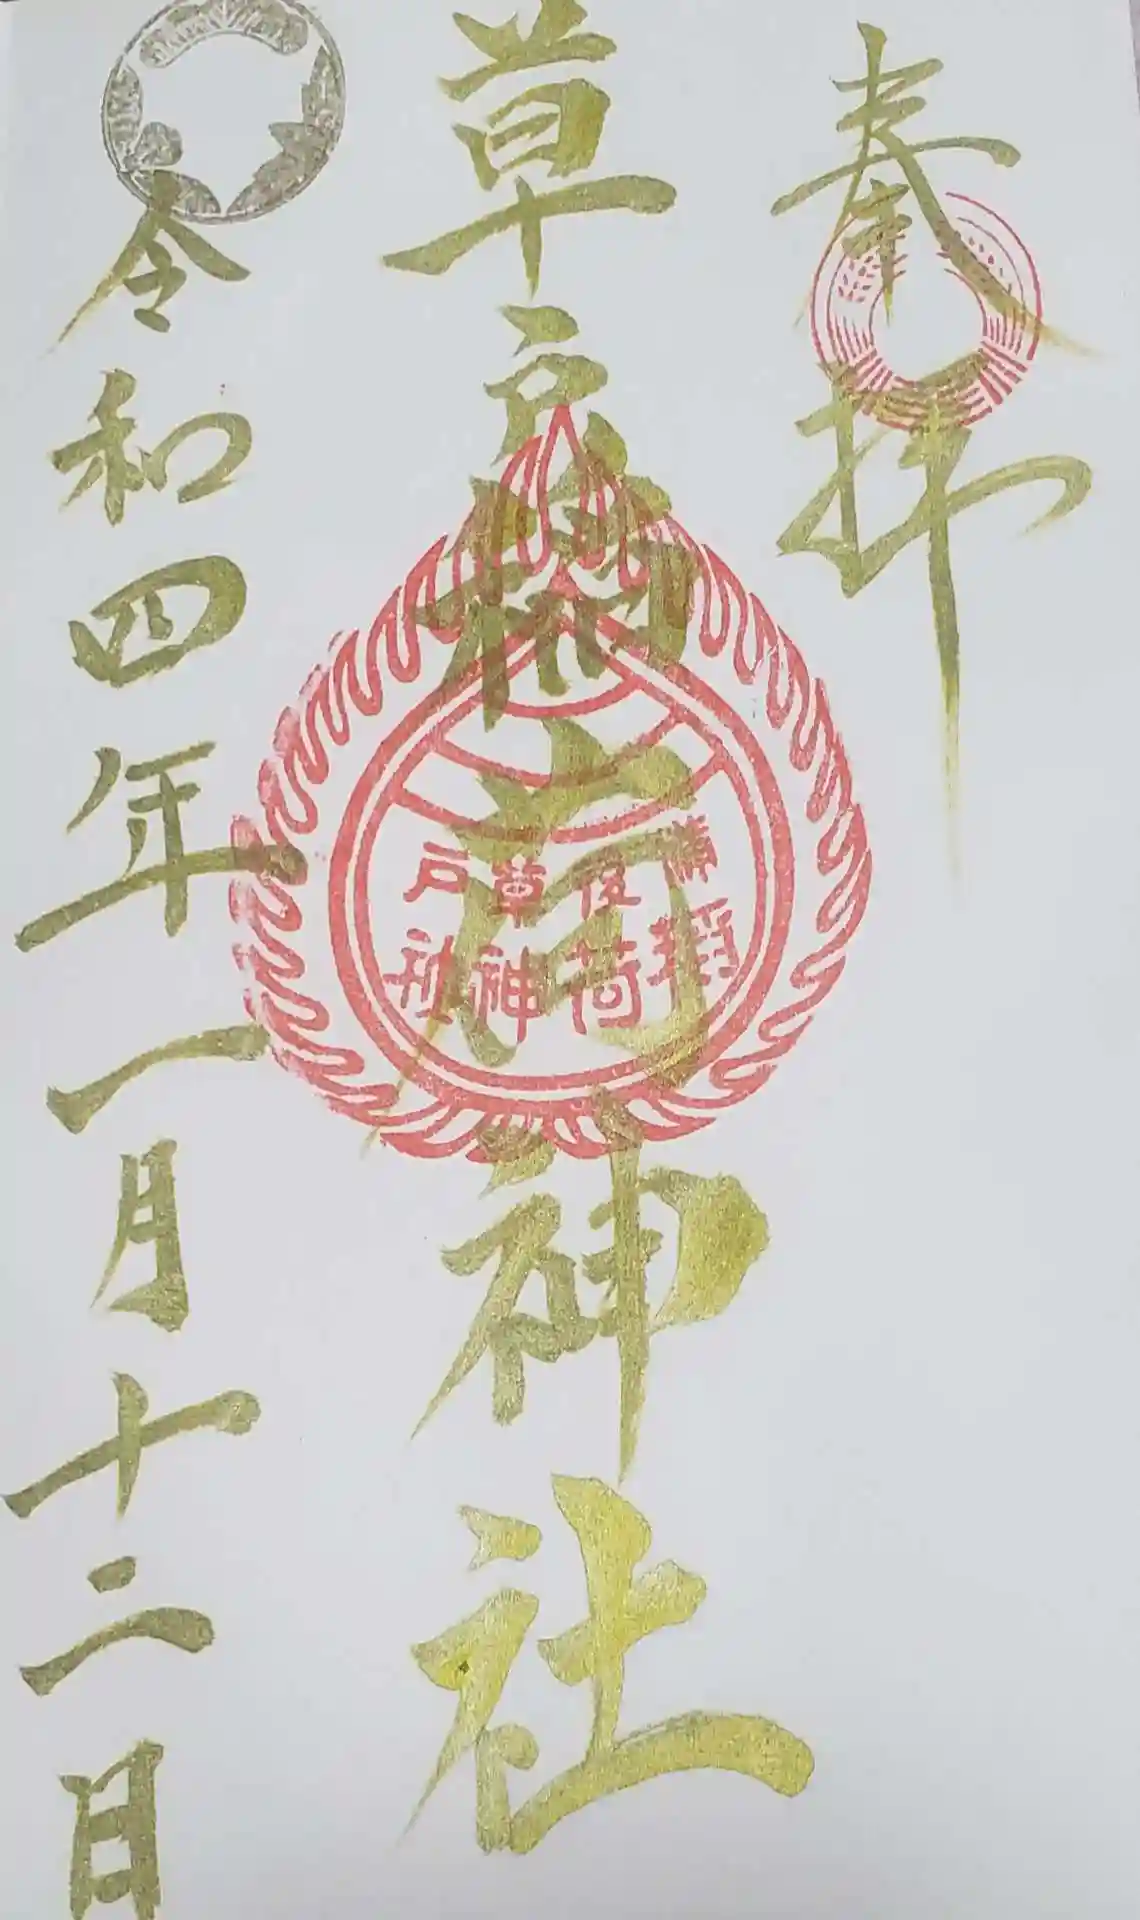 奉拝
草戸稲荷神社
備後草戸
稲荷神社
令和四年一月十二日